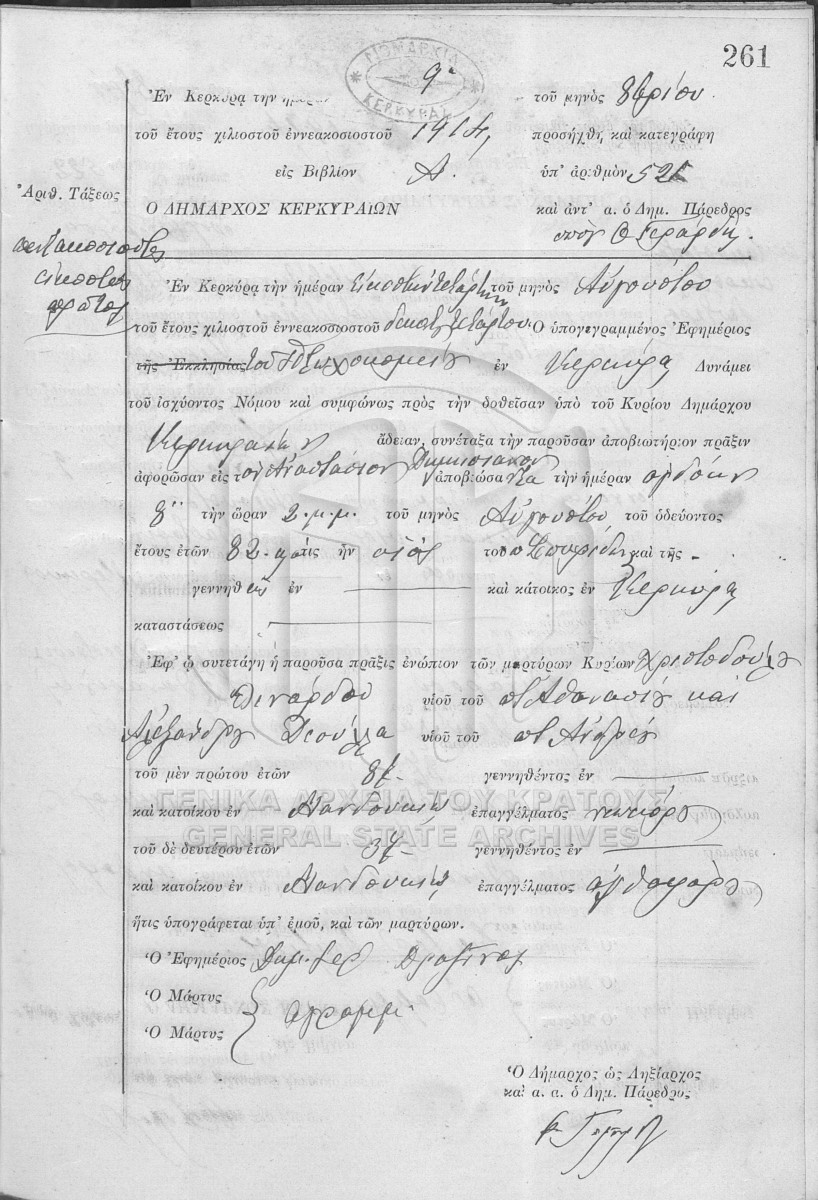 261
ΝΟΜΑΡΧΙΑ ΚΕΡΚΥΡΑΣ
Ἐν Κερκύρᾳ τὴν ἡμέραν 9ῃ τοῦ μηνὸς 8βρίου
τοῦ ἔτους χιλιοστοῦ ἐννεακοσιοστοῦ 1914, προσήχθη καὶ κατεγράφη
εἰς Βιβλίον Α. ὑπ' ἀριθμὸν 521
Ἀριθ. Τάξεως
Ὁ ΔΗΜΑΡΧΟΣ ΚΕΡΚΥΡΑΙΩΝ καὶ ἀντ' α. ὁ Δημ. Πάρεδρος
πεντακοσιοστὸς
εἰκοστὸς
πρῶτος
Ἐν Κερκύρᾳ τὴν ἡμέραν εἰκοστὴν τετάρτην τοῦ μηνὸς Αὐγούστου
τοῦ ἔτους χιλιοστοῦ ἐννεακοσιοστοῦ δεκάτου τετάρτου Ὁ ὑπογεγραμμένος Ἐφημέριος
τῆς Ἐκκλησίας τοῦ Πτωχοκομείου ἐν Κερκύρᾳ Δυνάμει
τοῦ ἰσχύοντος Νόμου καὶ συμφώνως πρὸς τὴν δοθεῖσαν ὑπὸ τοῦ Κυρίου Δημάρχου
Κερκυραίων ἄδειαν, συνέταξα τὴν παροῦσαν ἀποβιωτήριον πρᾶξιν
ἀφορῶσαν εἰς τὸν Ἀναστάσιον ἀποβιώσαντα τὴν ἡμέραν ὀγδόην
8 τὴν ὥραν 2 μ.μ. τοῦ μηνὸς Αὐγούστου τοῦ ὁδεύοντος
ἔτους ἐτῶν 82 τις ἦν υἱὸς τοῦ π Σπυρίδων καὶ τῆς -
γεννηθεὶς ἐν — καὶ κάτοικος ἐν Κερκύρᾳ
καταστάσεως —
Ἐφ' ᾧ συνετάγη ἡ παροῦσα πρᾶξις ἐνώπιον τῶν μαρτύρων Κυρίων Χριστοδούλου
υἱοῦ τοῦ π Ἀθανασίου καὶ
Ἀλεξάνδρου υἱοῦ τοῦ π Ἀνδρέου
τοῦ μὲν πρώτου ἐτῶν γεννηθέντος ἐν —
καὶ κατοίκου ἐν Μανδουκίῳ ἐπαγγέλματος
τοῦ δὲ δευτέρου ἐτῶν γεννηθέντος ἐν —
καὶ κατοίκου ἐν Μανδουκίῳ ἐπαγγέλματος
ἥτις ὑπογράφεται ὑπ' ἐμοῦ, καὶ τῶν μαρτύρων.
Ὁ Ἐφημέριος
Ὁ Μάρτυς
Ὁ Μάρτυς
ἀγράμμ.
Ὁ Δήμαρχος ὡς Ληξίαρχος
καὶ α. α. ὁ Δημ. Πάρεδρος
ΓΕΝΙΚΑ ΑΡΧΕΙΑ ΤΟΥ ΚΡΑΤΟΥΣ
GENERAL STATE ARCHIVES